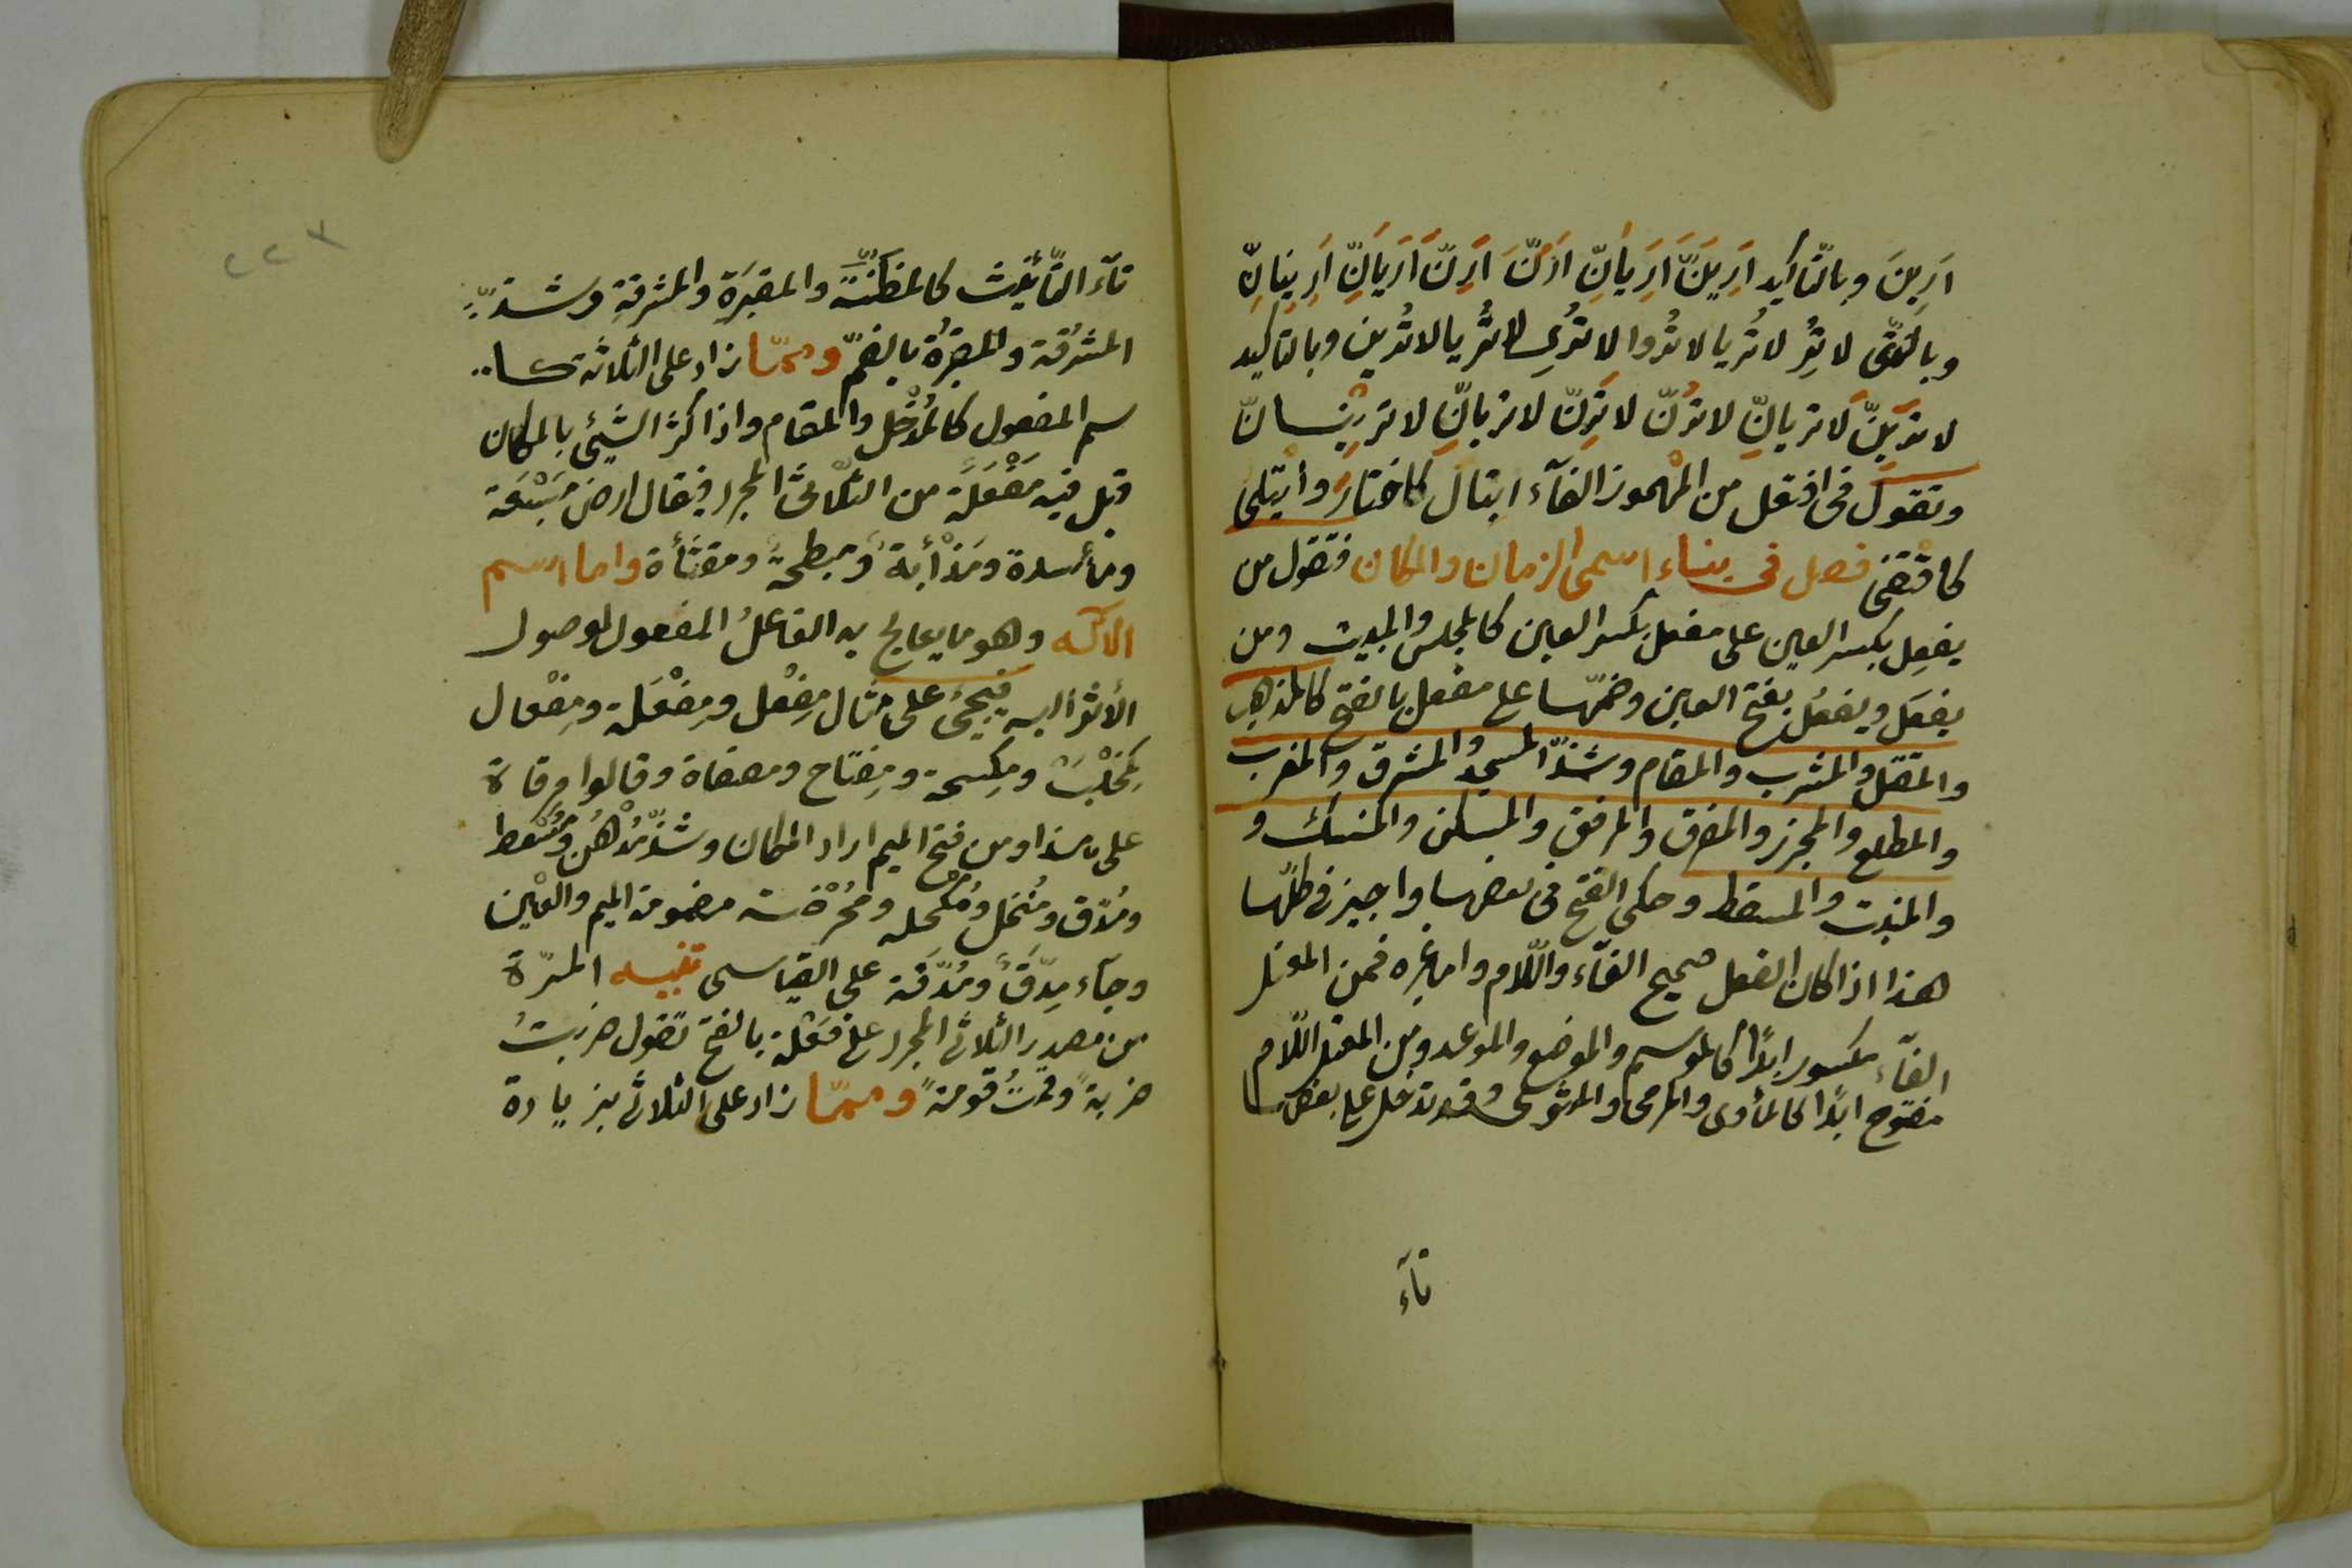 ارين وبالتّاكيد اَرِيَنَّ اَرِيَانِّ اَرُنَّ اَرِنَّ اَرِيَانِّ اَرِينانِّ
وبالنّهى لا تُرِ لا تُريا لا تُروا لا تُرى لا تُريا لا تُرين وبالتاكيد
لا تريَنّ لا تريانّ لا ترُنّ لا ترِنّ لا تريانّ لا ترينانّ
وتقول فى افتعل من المهموز الفآء ايتال كاختار وأيتلى
كاقتضى فصل فى بناء اسمى الزمان والمكان فتقول من
يفعِل بكسر العين على مفعِل بكسر العين كالمجلس والمبيت ومن
يفعَل ويفعُل بفتح العين وضمّها على مفعل بالفتح كالمذهب
والمقتل والمشرب والمقام وشذّ المسجد والمشرق والمغرب
والمطلع والمجزر والمفرق والمرفق والمسكن والمنسك و
والمنبت والمسقط وحكى الفتح فى بعضها واجيز فى كلّها
هذا اذا كان الفعل صحيح الفآء واللّام واما غيره فمن المعتل
الفآء مكسور ابدًا كالموسم والموضع والموعد ومن المعتل اللّام
مفتوح ابدًا كالمأوى والمرمى والمثوى وقد تدخل على بعضها
تآء
٢٢٣
تآء التّأنيث كالمظنّة والمقبَرَة والمشرقة وشذّ
المشرُقة والمقبرُة بالضمّ وممّا زاد على الثلاثة كا
سم المفعول كالمُدْخَل والمقام واذا كثر الشيئ بالمكان
قيل فيه مَفْعَلَة من الثّلاثىّ المجرد فيقال ارض مَسْبَعَة
ومأسدة ومَذْأبة ومبطخة ومقثأة واما اسم
الآلة وهو ما يعالج به الفاعلُ المفعول لوصول
الأثر اليه فيجئ على مثال مِفْعل ومِفْعَلة ومِفْعال
كمِحْلَب ومِكسحة ومِفتاح ومصفاة وقالوا مِرقاة
على هذا ومن فتح الميم اراد المكان وشذّ مُدْهُن ومُسْعُط
ومُدُق ومُنْخُل ومُكْحُلة ومُحْرُضة مضمومة الميم والعين
وجآء مِدَقٌّ ومُدَقّة على القياس تنبيه المرّة
من مصدر الثلاثى المجرد على فَعْلة بالفتح تقول ضربتُ
ضربةً وقمتُ قومةً وممّا زاد على الثلاثى بزيادة